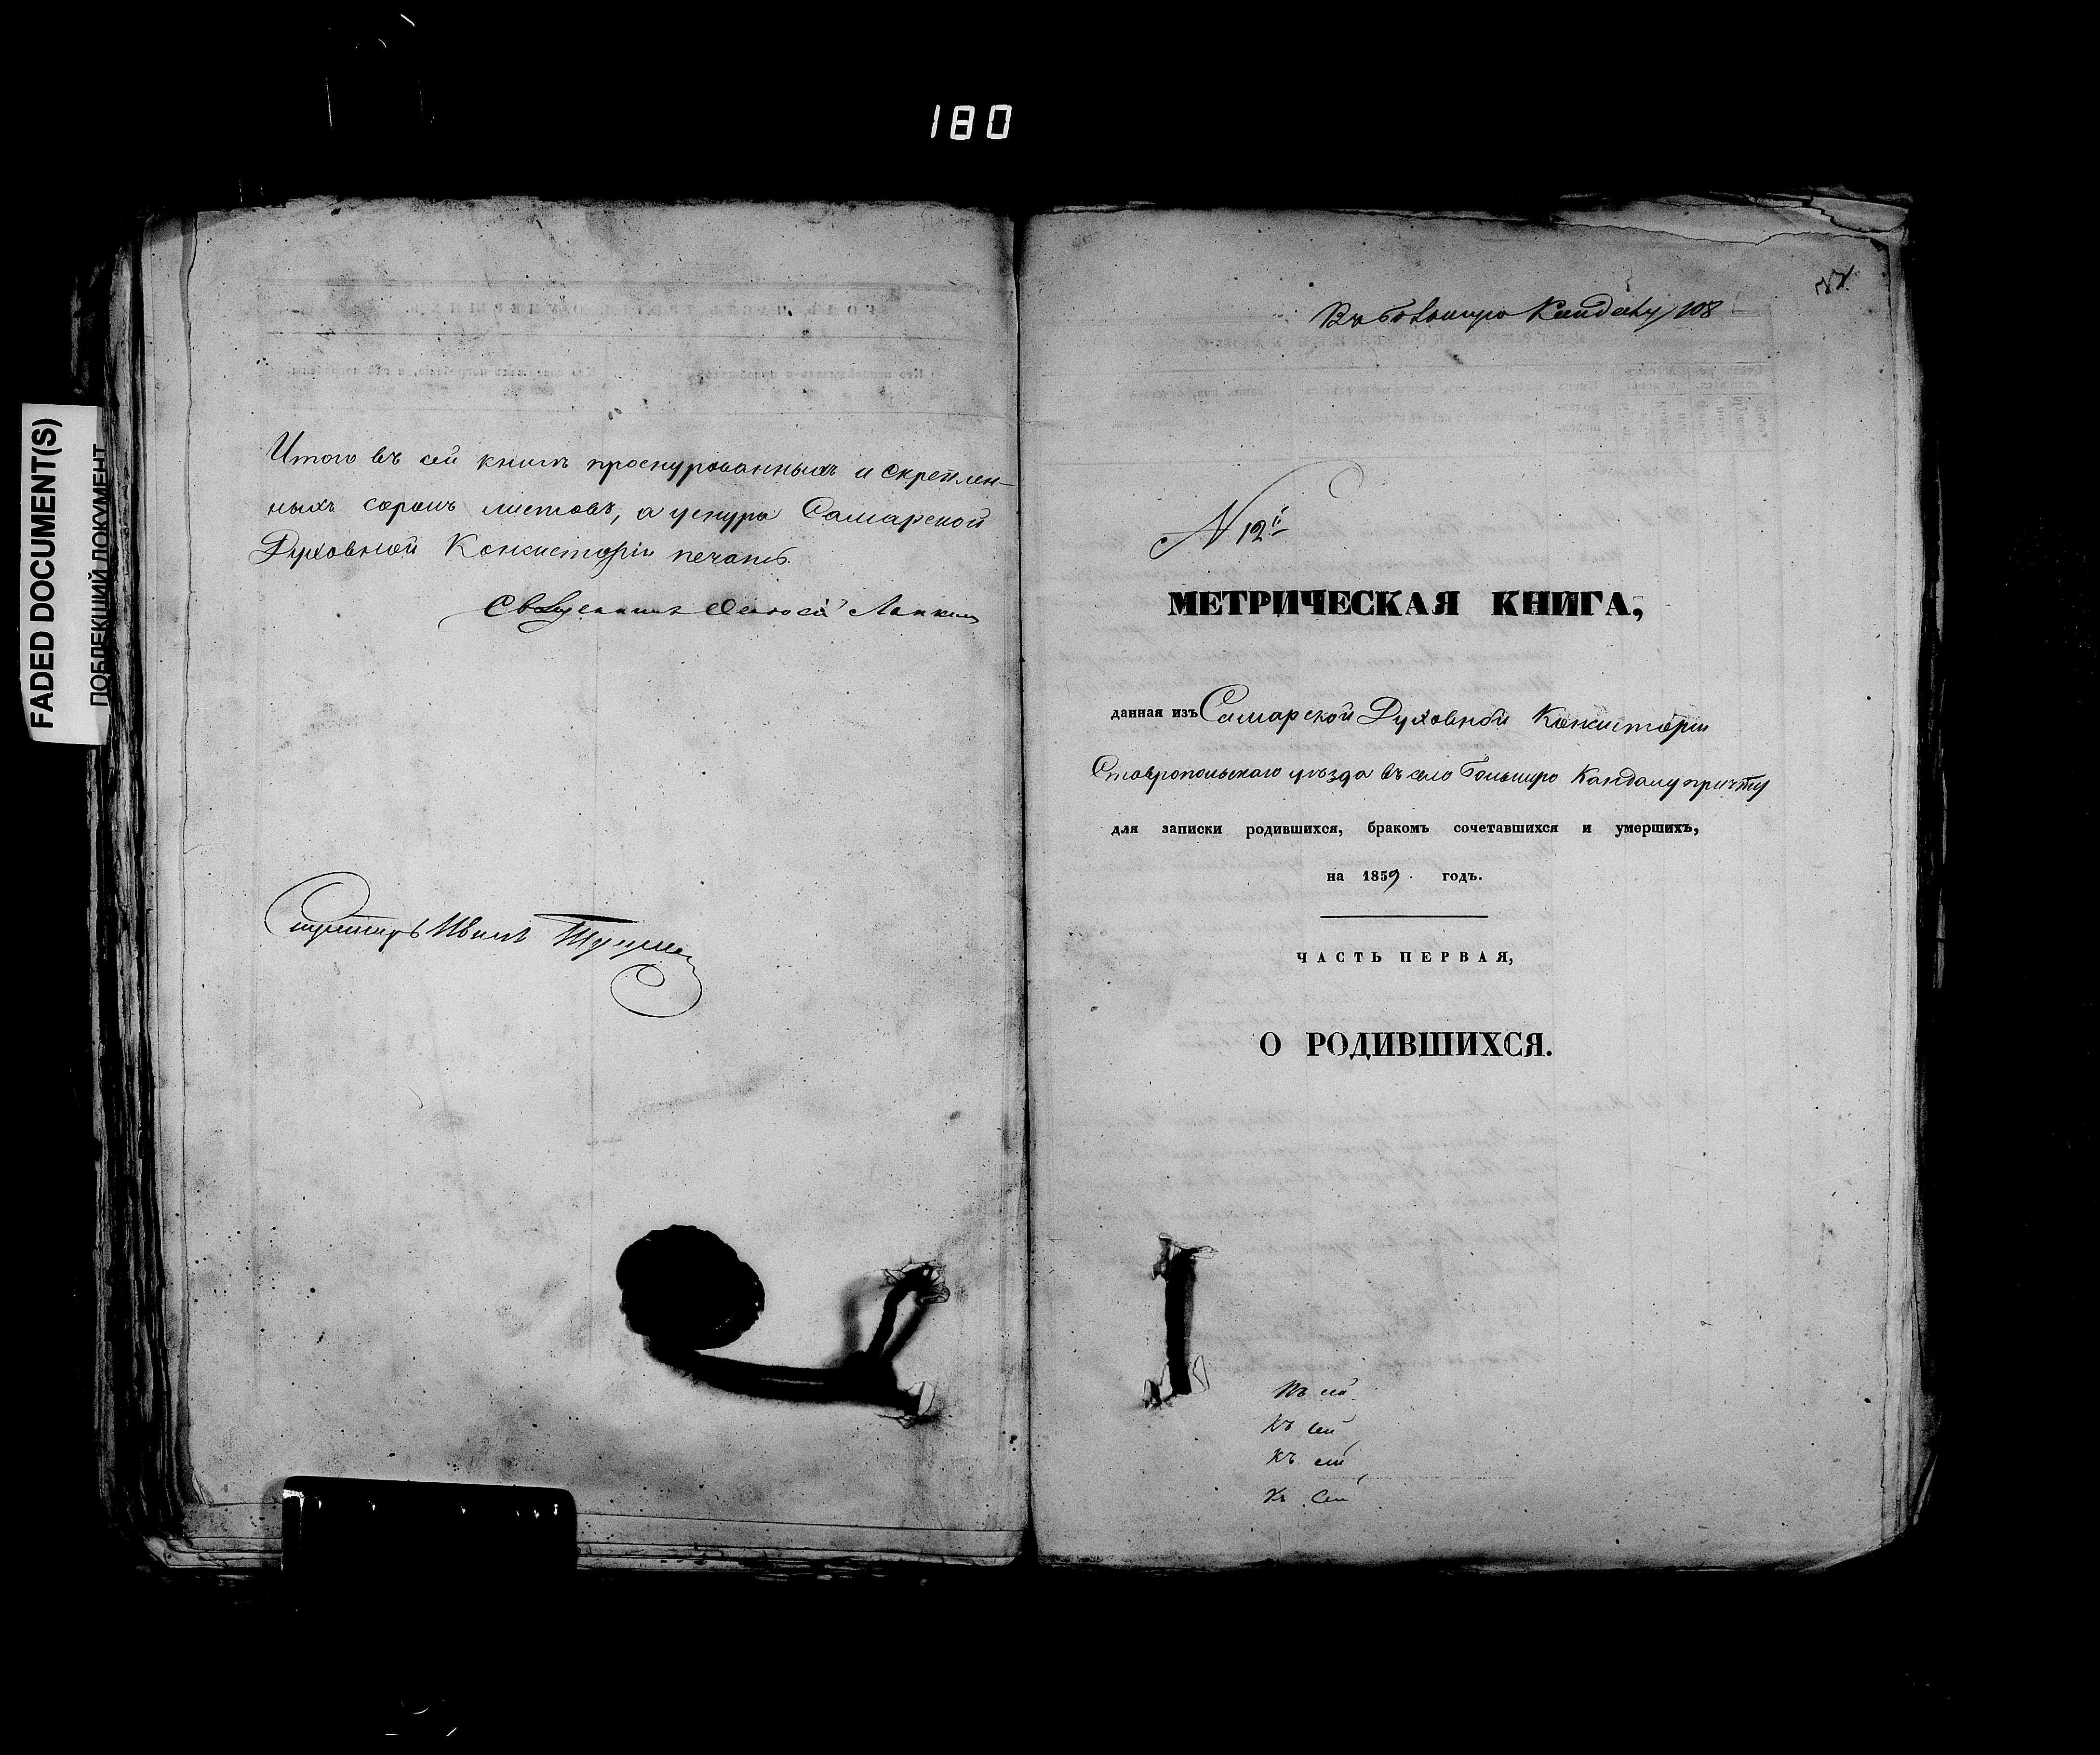 180
FADED DOCUMENT(S)
ПОБЛЕКШИЙ ДОКУМЕНТ
Итого въ сей книгѣ прошнурованныхъ и скрѣплен-
ныхъ сорокъ листовъ, а у шнура Самарской
Духовной Консисторіи печать.
Священникъ Лапкин
Иванъ
Въ большую Кандалу 108
N 12й
МЕТРИЧЕСКАЯ КНИГА,
данная изъ Самарской Духовной Консисторіи
Ставропольскаго уѣзда въ село Большую Кандалу причту
для записки родившихся, бракомъ сочетавшихся и умершихъ,
на 1859 годъ.
ЧАСТЬ ПЕРВАЯ,
О РОДИВШИХСЯ.
Къ сей
Къ сей
Къ сей
Къ сей